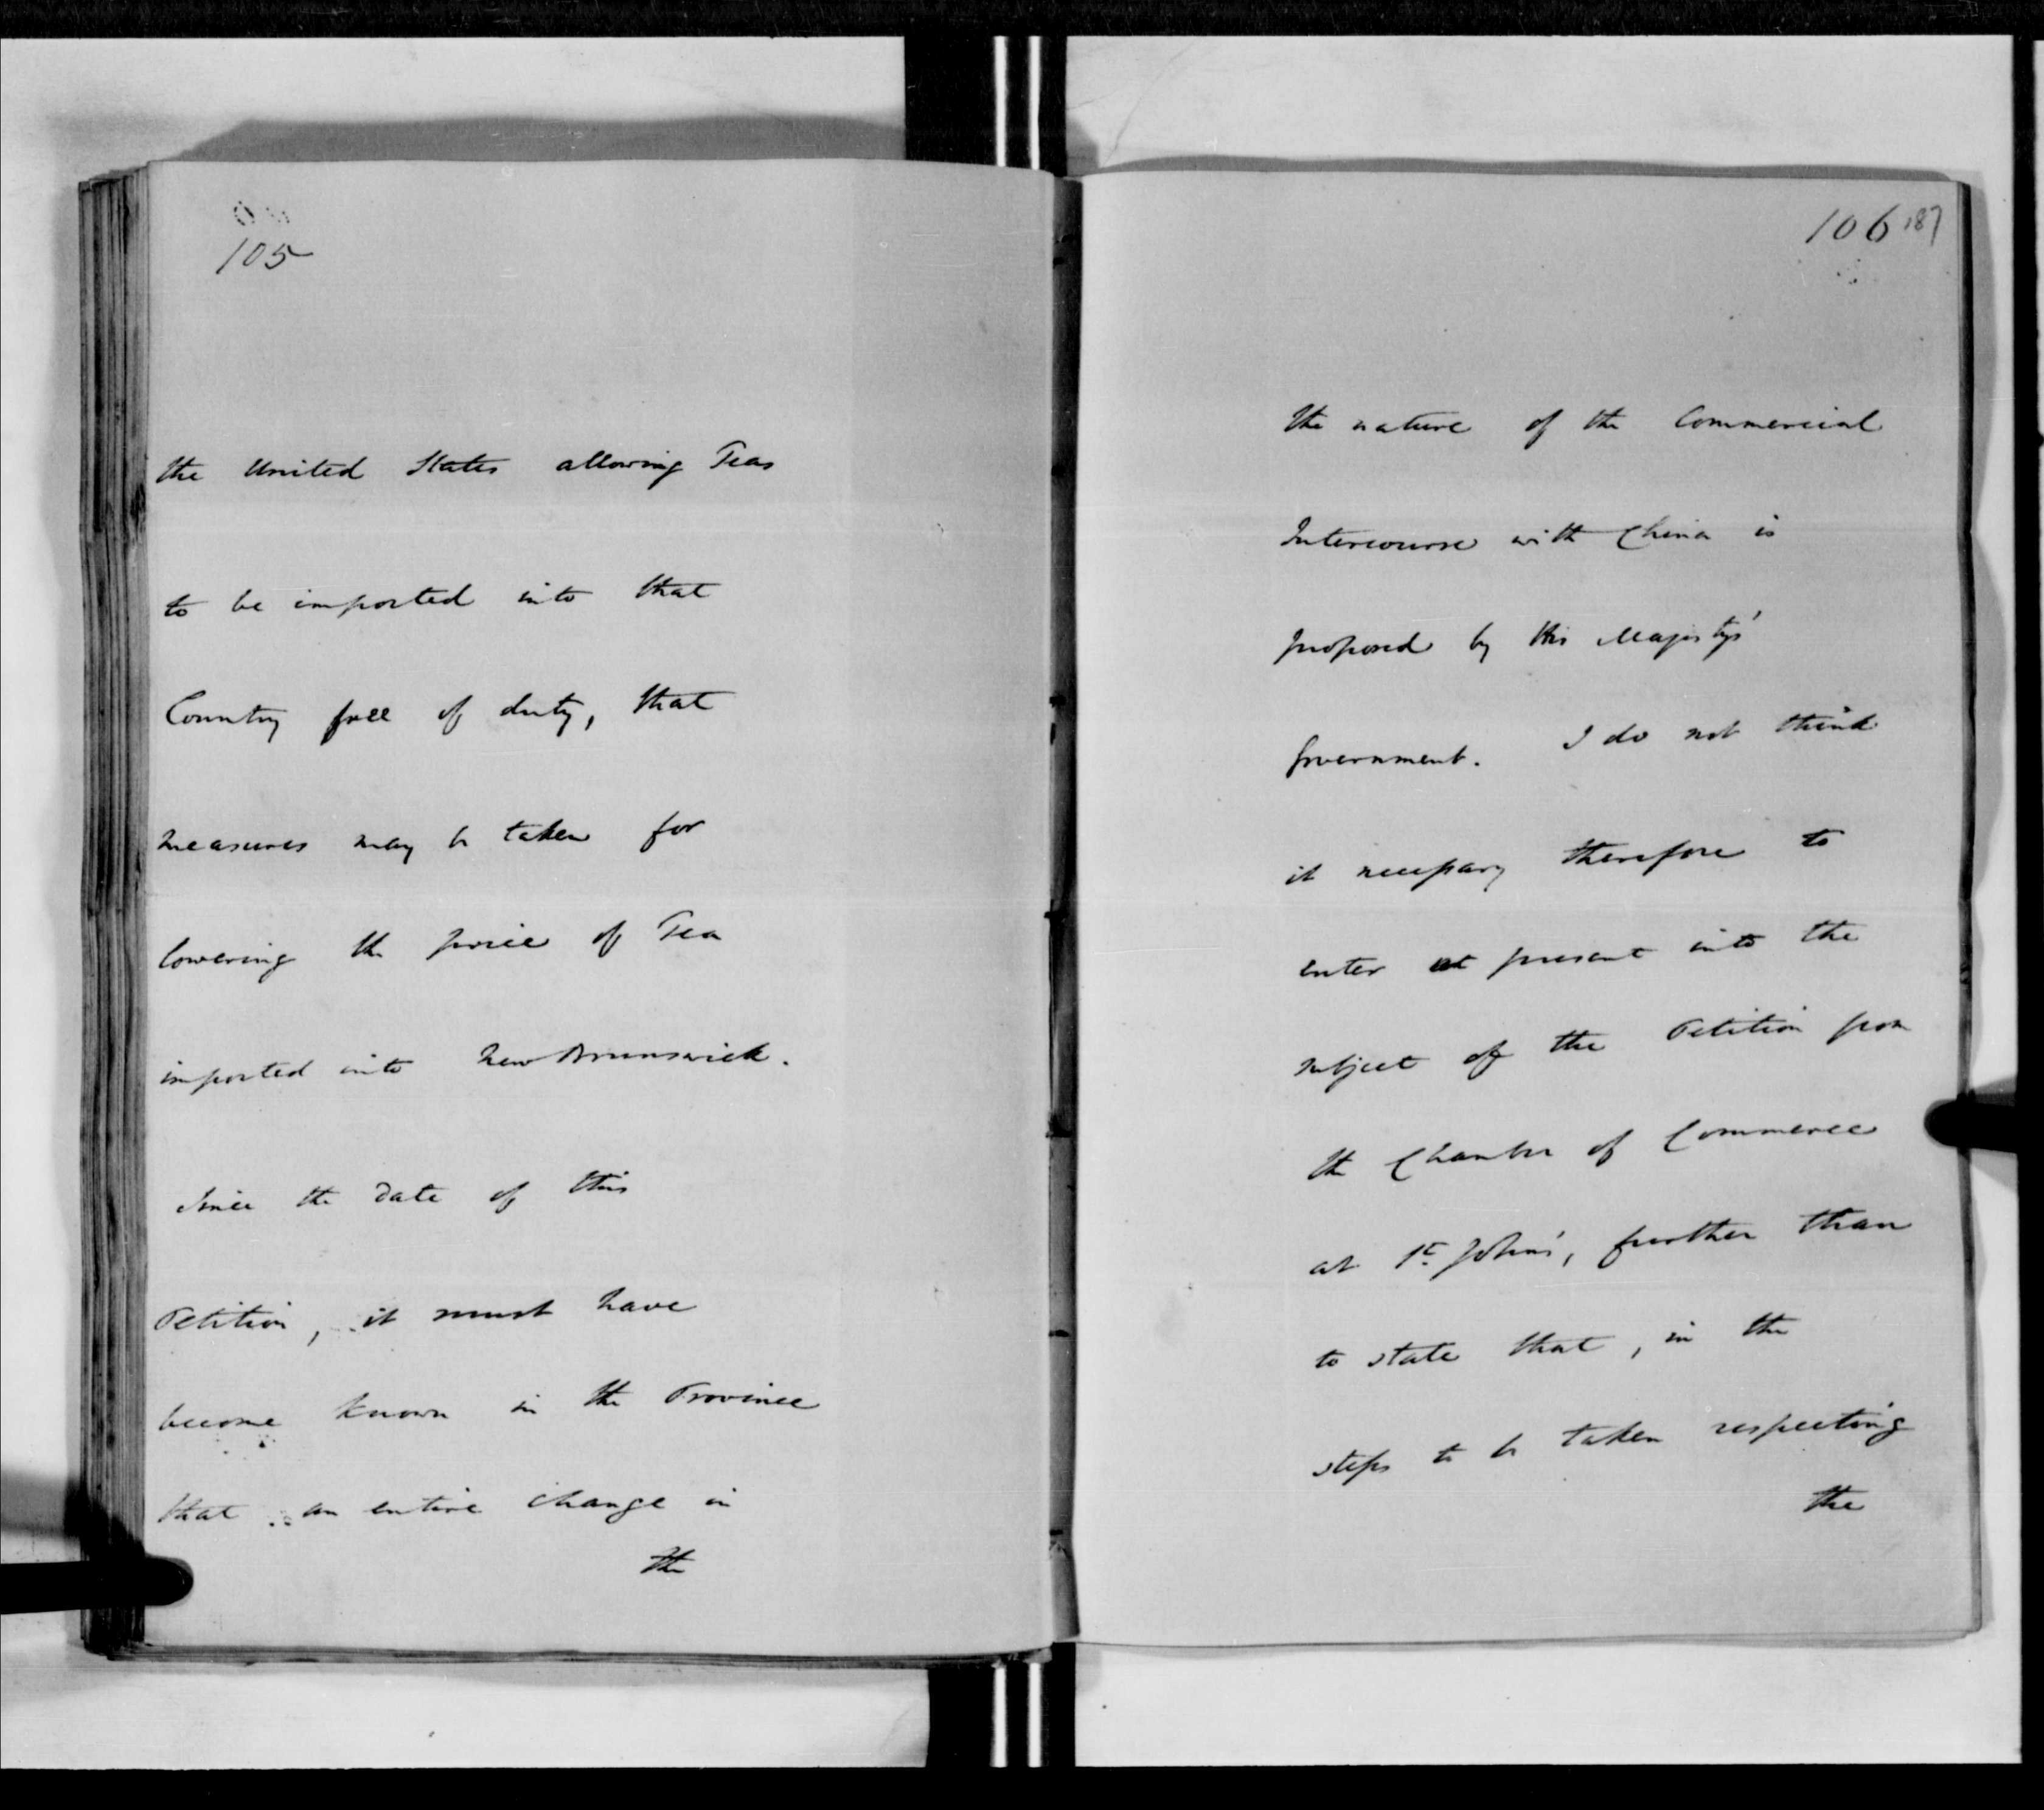 105
the United States allowing Teas
to be imported into that
Country free of duty, that
measures may be taken for
lowering the price of Tea
imported into New Brunswick.
Since the Date of this
Petition, it must have
become known in the Province
that an entire change in
the
106 187
the nature of the Commercial
Intercourse with China is
proposed by His Majesty's
Government. I do not think
it necessary therefore to
enter at present into the
subject of the Petition from
the Chamber of Commerce
at St. John's, further than
to state that, in the
steps to be taken respecting
the